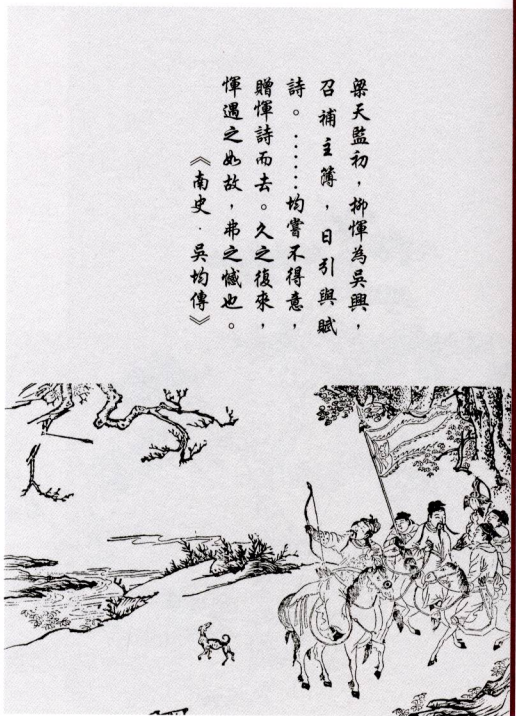 梁天監初，柳惲為吳興，
召補主簿，日引與賦
詩。……均嘗不得意，
贈惲詩而去。久之復來，
惲遇之如故，弗之憾也。
《南史·吳均傳》